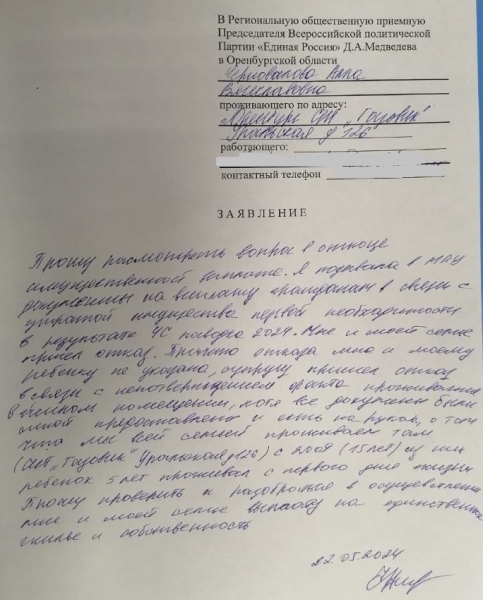 В Региональную общественную приемную
Председателя Всероссийской политической
Партии «Единая Россия» Д.А.Медведева
в Оренбургской области
Черновалова Алла
Вячеславовна
проживающего по адресу:
Оренбург СНТ „Газовик"
Уральская д 126
работающего:
контактный телефон
ЗАЯВЛЕНИЕ
Прошу рассмотреть вопрос в отказе
имущественной выплате. Я подавала в МАУ
документы на выплату гражданам в связи с
утратой имущества первой необходимости
в результате ЧС паводка 2024. Мне и моей семье
пришел отказ. Причина отказа мне и моему
ребенку не указана, супругу пришел отказ
в связи с неподтверждением факта проживания
в жилом помещении, хотя все документы были
мной предоставлено и есть на руках, о том
что мы всей семьей проживаем там
(СНТ „Газовик" Уральская д 126) с 2009 (15 лет) из них
ребенок 5 лет проживал с первого дня жизни
Прошу проверить и разобраться в осуществлении
мне и моей семье выплату на единственное
жилье и собственность
22.05.2024